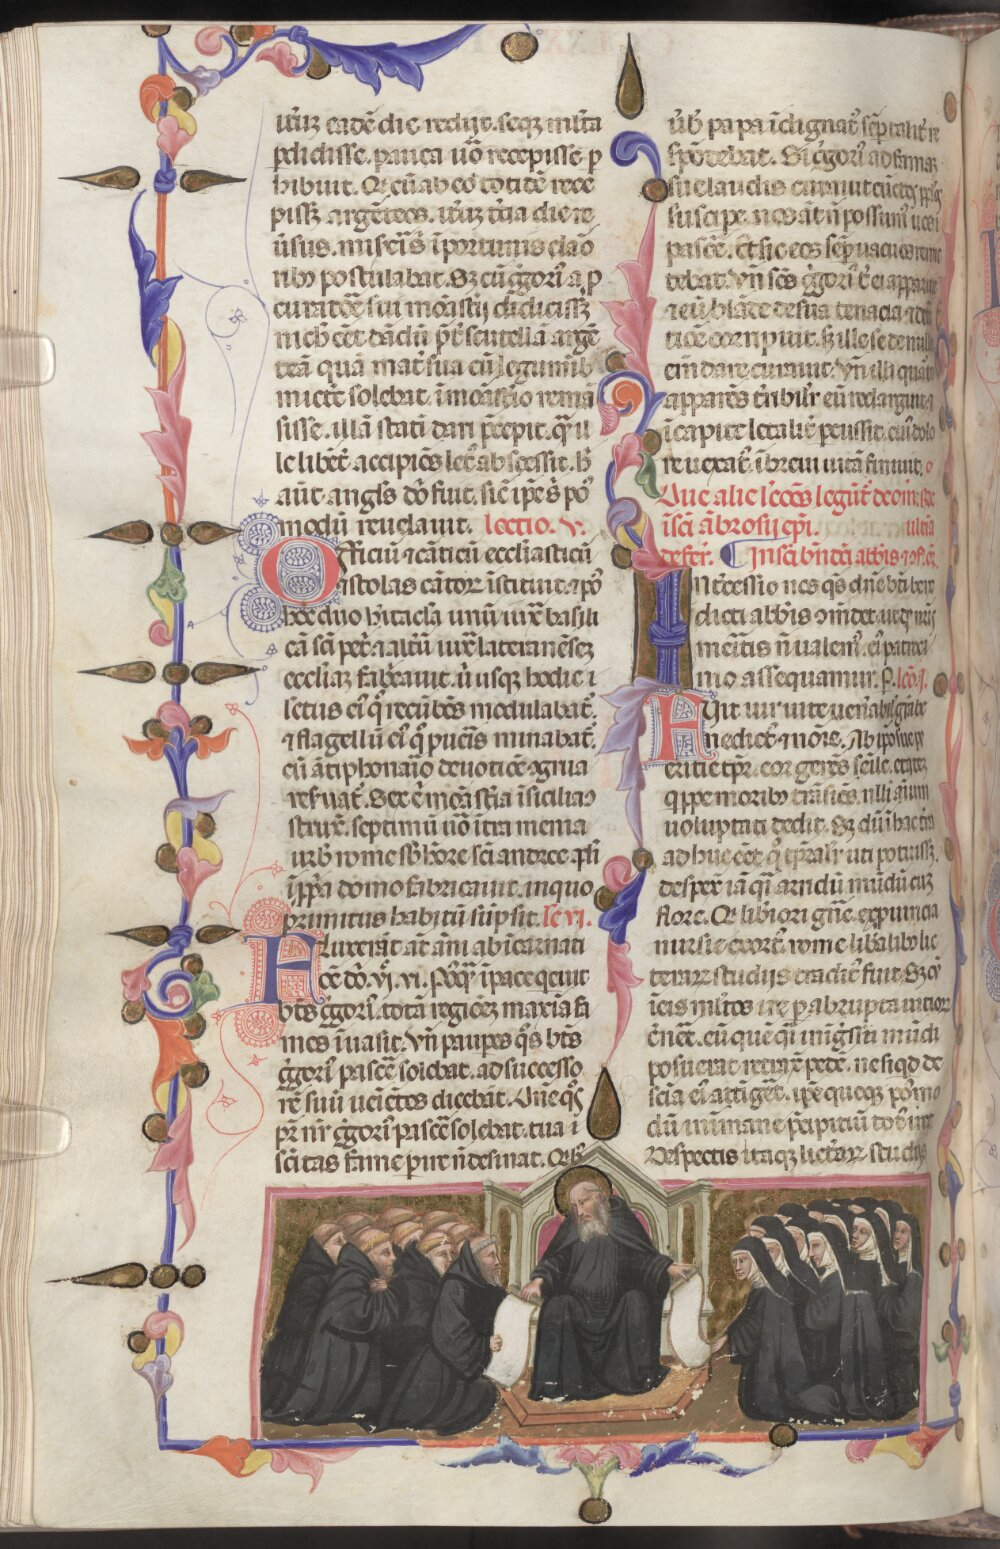 uirum eadē die redijt. seq; mlta
pdidisse. pauca uō recepisse p
hibuit. Qͥ cū ab eo totidē rece
pissꝫ argēteos. it͛uꝫ t͛tia die re
u͛sus. misc͛is īportunis clao
ribꝫ postulabat. Sꝫ cū g̃gori͛ a p
curatōe sui mōastij didicissꝫ
nich͛ eēt dādū p͛t͛ scutellā argē
teā quā mat͛ sua cū legumībꝫ
mict͛e solebat. ī mōast͛io remā
sisse. illā statī dari p͛cepit. q̄ il
le libēt͛. accipiēs let͛ abscessit. h̄
aūt. angl͛s dn̄i fuit. sic͛ ip̄e s͛ po͛
modū reuelauit. lectio. v.
Officiū ⁊ cāticū eccliasticū
astolas cātor͛ īstituit. ⁊ p͛o
hoc duo hītacla unū iux͛ basili
cā sc̄i pet͛. ⁊ altū iux͛ lateranēseꝫ
eccliaꝫ fabͥcauit. u͛ usqꝫ hodie l
lectus ei͛ ī q͛ recūbēs modulabat͛.
⁊ flagellū ei͛ q͛ pueris minabat͛.
cū ātiphonaio deuotiōe ꝯgrua
reſuat͛. Sex ē mōast͛ia ī sicilia ꝯ
struxͥ. septimū uō īt͛a menia
urbͥ rome sb͛ hōre sc̄i andree apl͛i
ī p͛p͛a domo fabricauit. in quo
primitus habitū sūpsit. le vi.
Fluxerāt at āni ab īcarnati
ōe dn̄i. vj. vi. Pꝰq̄ ī pace qeuit
bt̄s g̃gori͛. totā regiōeꝫ maxīa fa
mes īuasit. Vn̄ paupes q͛s bt̄s
g̃gori͛ pasce͛ solebat. ad successo
rē suū ueiētes dicebāt. Dn̄e q͛s
p͛r n͛r g̃gori͛ pasce͛ solebat. tua ī
sc̄itas fame pire n̄ desinat. Qͥbꝫ
u͛bꝫ papa īdignat͛ sēp talit͛ re
spōdebat. Si g̃gori͛ ad famaꝫ
sue laudis curauit cūctos pp͛los
suscipe. nos at n̄ possum͛ uos
pasce͛. Et sic eos sēp uacuos remit
tebat. Vn̄ sc̄s g̃gori͛ t͛ ei apparuit
⁊ eū blāde de sua tenacia ⁊ det͛
tiōe corripuit. sꝫ ille se de nullo
emdare curauit. Vn̄ illi quarto
apparēs t͛ribilr͛ eū redarguit ⁊
ī capite letalit͛ pcussit. cui͛ dolo
re uexat͛. ī breui uitā finiuit.
Que alie lc̄ōes legūt͛ de om̄i. see
īsc̄i ābrosij ep̄i. ultīa
defer͛. In sc̄i bn̄dc̄i abbis ⁊ ꝯf. ō.
Int͛cessio nos q͛s dn̄e bt̄i bene
dicti abbis ꝯm̄det. ut qd͛ nr̄is
meritis n̄ ualem͛. ei͛ patroci
nio assequamur. p. leō. j.
Fuit uir uite uen͛abil͛ gr̄a be
nedict͛ ⁊ nōie. Ab ip̄o sue p
eritie tp͛r. cor gerēs seile. etateꝫ
q͛ppe moribꝫ trāsiēs. nulli aīum
uoluptati dedit. Sꝫ dū ī hac t͛ra
adhuc eēt q͛ tp͛ralr͛ uti potuissꝫ.
despex͛ iā q͛i aridū mūdū cuꝫ
flore. Qͥ libiori gn̄e. ex puincia
nursie exort͛. rome libalibꝫ lic
terar͛ studijs tradit͛ fuit. Sꝫ cū
ī eis ml͛tos ire p abrupta uitior͛
c͛neret. eū quē q͛i in īg͛ssu mūdi
posuerat ret͛xit pedē. ne siqd de
scīa ei͛ attīg͛et. ip̄e quoqꝫ pꝰmo
dū in īmane p͛cipitiū tot͛ iret.
Despectis itaqꝫ lict͛ar͛ studijs